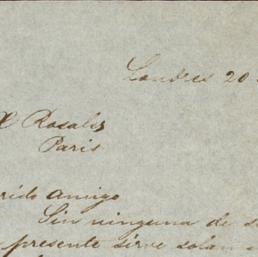 Londres 20
X Rosales
Paris
rido amigo
Sin ninguna de s
presente sirve solam